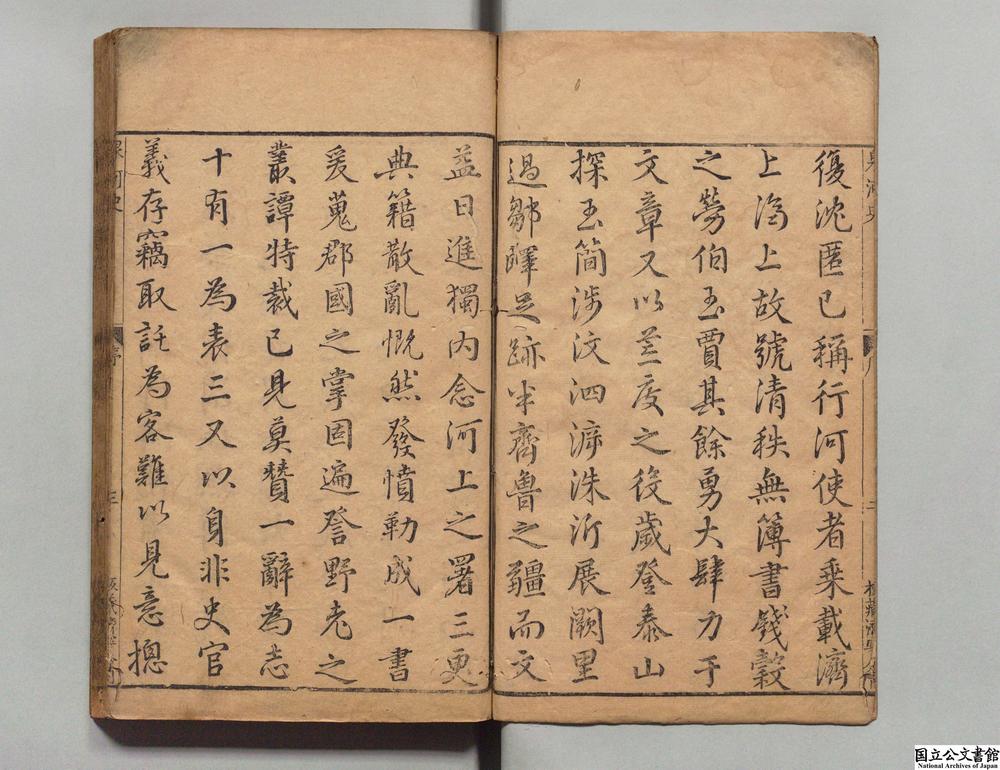 復沈匿已稱行河使者乘載濟
上汶上故號清秩無簿書錢穀
之勞伯玉賈其餘勇大肆力于
文章又以莅度之後歲登泰山
探玉簡涉汶泗漷洙沂展闕里
過鄒嶧足跡半齊魯之疆而文
益日進獨内念河上之署三更
典籍散亂慨然發憤勒成一書
爰蒐郡國之掌固遍詧野老之
叢譚特裁己見莫贊一辭為志
十有一為表三又以身非史官
義存竊取託為客難以見意摠
序
三
国立公文書館
National Archives of Japan